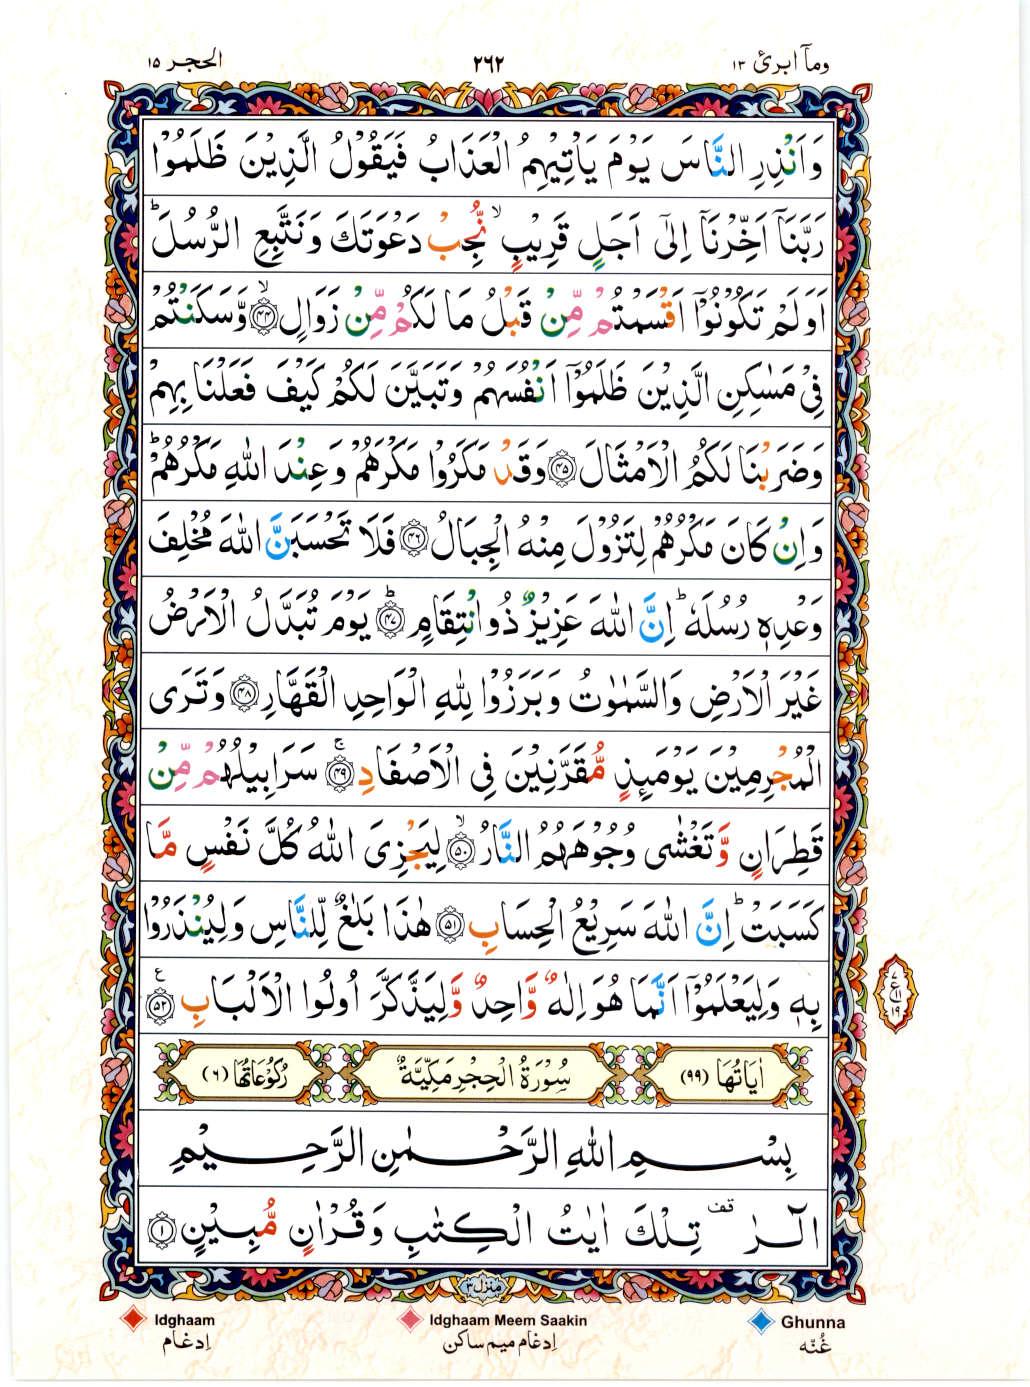 وماۤ ابرئ ١٣
٢٦٢
الحجر ١٥
وَاَنْذِرِ النَّاسَ يَوْمَ يَاْتِيْهِمُ الْعَذَابُ فَيَقُوْلُ الَّذِيْنَ ظَلَمُوْا
رَبَّنَاۤ اَخِّرْنَاۤ اِلٰۤى اَجَلٍ قَرِيْبٍ ۙ نُّجِبْ دَعْوَتَكَ وَنَتَّبِعِ الرُّسُلَ ؕ
اَوَلَمْ تَكُوْنُوْۤا اَقْسَمْتُمْ مِّنْ قَبْلُ مَا لَكُمْ مِّنْ زَوَالٍ ۙ‏﴿۴۴﴾ وَّسَكَنْتُمْ
فِىْ مَسٰكِنِ الَّذِيْنَ ظَلَمُوْۤا اَنْفُسَهُمْ وَتَبَيَّنَ لَكُمْ كَيْفَ فَعَلْنَا بِهِمْ
وَضَرَبْنَا لَكُمُ الْاَمْثَالَ ﴿۴۵﴾ وَقَدْ مَكَرُوْا مَكْرَهُمْ وَعِنْدَ اللّٰهِ مَكْرُهُمْ ؕ
وَاِنْ كَانَ مَكْرُهُمْ لِتَزُوْلَ مِنْهُ الْجِبَالُ ﴿۴۶﴾ فَلَا تَحْسَبَنَّ اللّٰهَ مُخْلِفَ
وَعْدِهٖ رُسُلَهٗ ؕ اِنَّ اللّٰهَ عَزِيْزٌ ذُو انْتِقَامٍ ؕ‏﴿۴۷﴾ يَوْمَ تُبَدَّلُ الْاَرْضُ
غَيْرَ الْاَرْضِ وَالسَّمٰوٰتُ وَبَرَزُوْا لِلّٰهِ الْوَاحِدِ الْقَهَّارِ ﴿۴۸﴾ وَتَرَى
الْمُجْرِمِيْنَ يَوْمَٮِٕذٍ مُّقَرَّنِيْنَ فِى الْاَصْفَادِ ۚ‏﴿۴۹﴾ سَرَابِيْلُهُمْ مِّنْ
قَطِرَانٍ وَّتَغْشٰى وُجُوْهَهُمُ النَّارُ ۙ‏﴿۵۰﴾ لِيَجْزِىَ اللّٰهُ كُلَّ نَفْسٍ مَّا
كَسَبَتْ ؕ اِنَّ اللّٰهَ سَرِيْعُ الْحِسَابِ ﴿۵۱﴾ هٰذَا بَلٰغٌ لِّلنَّاسِ وَلِيُنْذَرُوْا
بِهٖ وَلِيَعْلَمُوْۤا اَنَّمَا هُوَ اِلٰهٌ وَّاحِدٌ وَّلِيَذَّكَّرَ اُولُوا الْاَلْبَابِ ﴿۵۲﴾ ع
اٰيَاتُهَا (٩٩) سُوْرَةُ الْحِجْرِ مَكِّيَّةٌ رُكُوْعَاتُهَا (٦)
بِسْمِ اللّٰهِ الرَّحْمٰنِ الرَّحِيْمِ
الٓرٰ ࣞ قف تِلْكَ اٰيٰتُ الْكِتٰبِ وَقُرْاٰنٍ مُّبِيْنٍ ﴿۱﴾
منزل ٣
Ghunna
Idghaam Meem Saakin
Idghaam
غُنّه
اِدغام میم ساکن
اِدغام